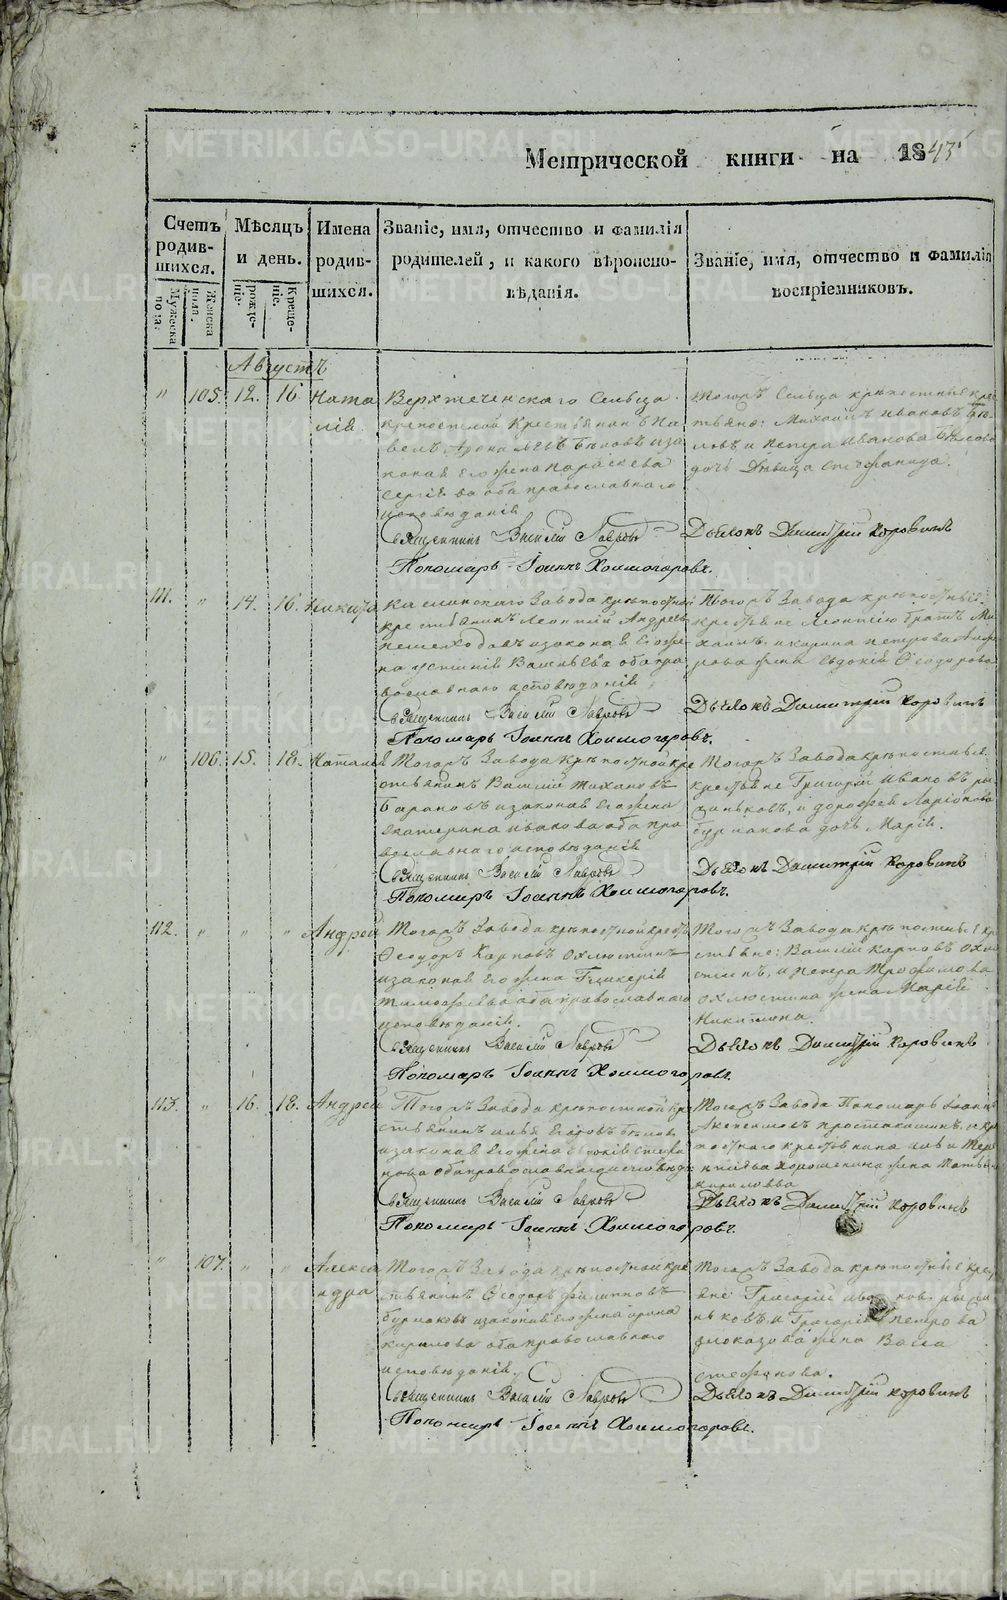 Метрической книги на 1843
Счетъ родив-шихся.
Мужеска пола.
Женска пола.
Мѣсяцъ и день.
рожде-ніе.
Креще-ніе.
Имена родив-шихся.
Званіе, имя, отчество и фамилія
родителей, и какого вѣроиспо-
вѣданія.
Званіе, имя, отчество и фамилія
воспріемниковъ.
Августъ
" 105. 12. 16 Ната
лія
Верхтеченскаго Сельца
крепостной Крестьянинъ Па
велъ Бѣловъ и за
конная Его жена Параскева
Сергіева оба православнаго
исповѣданія
Священникъ Василій Лавровъ
Пономарь Іоаннъ Холмогоровъ.
Тогожъ Сельца крѣпостные крес
тьяне: Михаилъ Ивановъ Бѣ
ловъ и Петра Иванова Бѣлова
дочь Дѣвица Степанида.
Дьяконъ Димитрій Коровинъ
111. " 14. 16. Никита
Каслинскаго Завода крѣпостной
крестьянинъ Леонтій Андреевъ
и законная Его же
на Устинія Васильева оба пра
вославнаго исповѣданія
Священникъ Василій Лавровъ
Пономарь Іоаннъ Холмогоровъ.
Тогожъ Завода крѣпостные
крестьяне Леонтію братъ Ми
хаилъ, и Петрова
жена Евдокія Ѳеодорова
Дьяконъ Димитрій Коровинъ
" 106. 15. 18. Наталія
Тогожъ Завода крѣпостной кре
стьянинъ Василій
Барановъ и законная Его жена
Екатерина Иванова оба пра
вославнаго исповѣданія
Священникъ Василій Лавровъ
Пономарь Іоаннъ Холмогоровъ.
Тогожъ Завода крѣпостные
крестьяне Григорій Ивановъ
и Ларіонова
Бурмакова дочь Марія.
Дьяконъ Димитрій Коровинъ
112. " " " Андрей
Тогожъ Завода крѣпостной кресть
Ѳеодоръ Карповъ Охлюстинъ
и законная Его жена Гликерія
Тимофѣева оба православнаго
исповѣданія.
Священникъ Василій Лавровъ
Пономарь Іоаннъ Холмогоровъ.
Тогожъ Завода крѣпостные кре
стьяне: Василій Карповъ Охлю
стинъ, и Петра Трофимова
Охлюстина жена Марія
Никитина.
Дьяконъ Димитрій Коровинъ
113. " 16. 18. Андрей
Тогожъ Завода крѣпостной кре
стьянинъ Илья Егоровъ
и законная Его жена Евдокія Степа
нова оба православнаго исповѣд
Священникъ Василій Лавровъ
Пономарь Іоаннъ Холмогоровъ.
Тогожъ Завода Пономарь Іоаннъ
и крѣ
постнаго крестьянина
Хорошенина жена Татьяна
Кирилловва
Дьяконъ Димитрій Коровинъ
" 107. " " Алекса
ндра
Тогожъ Завода крѣпостной кре
стьянинъ Ѳеодоръ Филипповъ
Бурмаковъ и законная Его жена Ирина
Кирилова оба православнаго
исповѣданія.
Священникъ Василій Лавровъ
Пономарь Іоаннъ Холмогоровъ.
Тогожъ Завода крѣпостные крес
тьяне Григорій Ивановъ
и Григорія Петрова
Злоказова жена Васса
Стефанова.
Дьяконъ Димитрій Коровинъ
METRIKI.GASO-URAL.RU